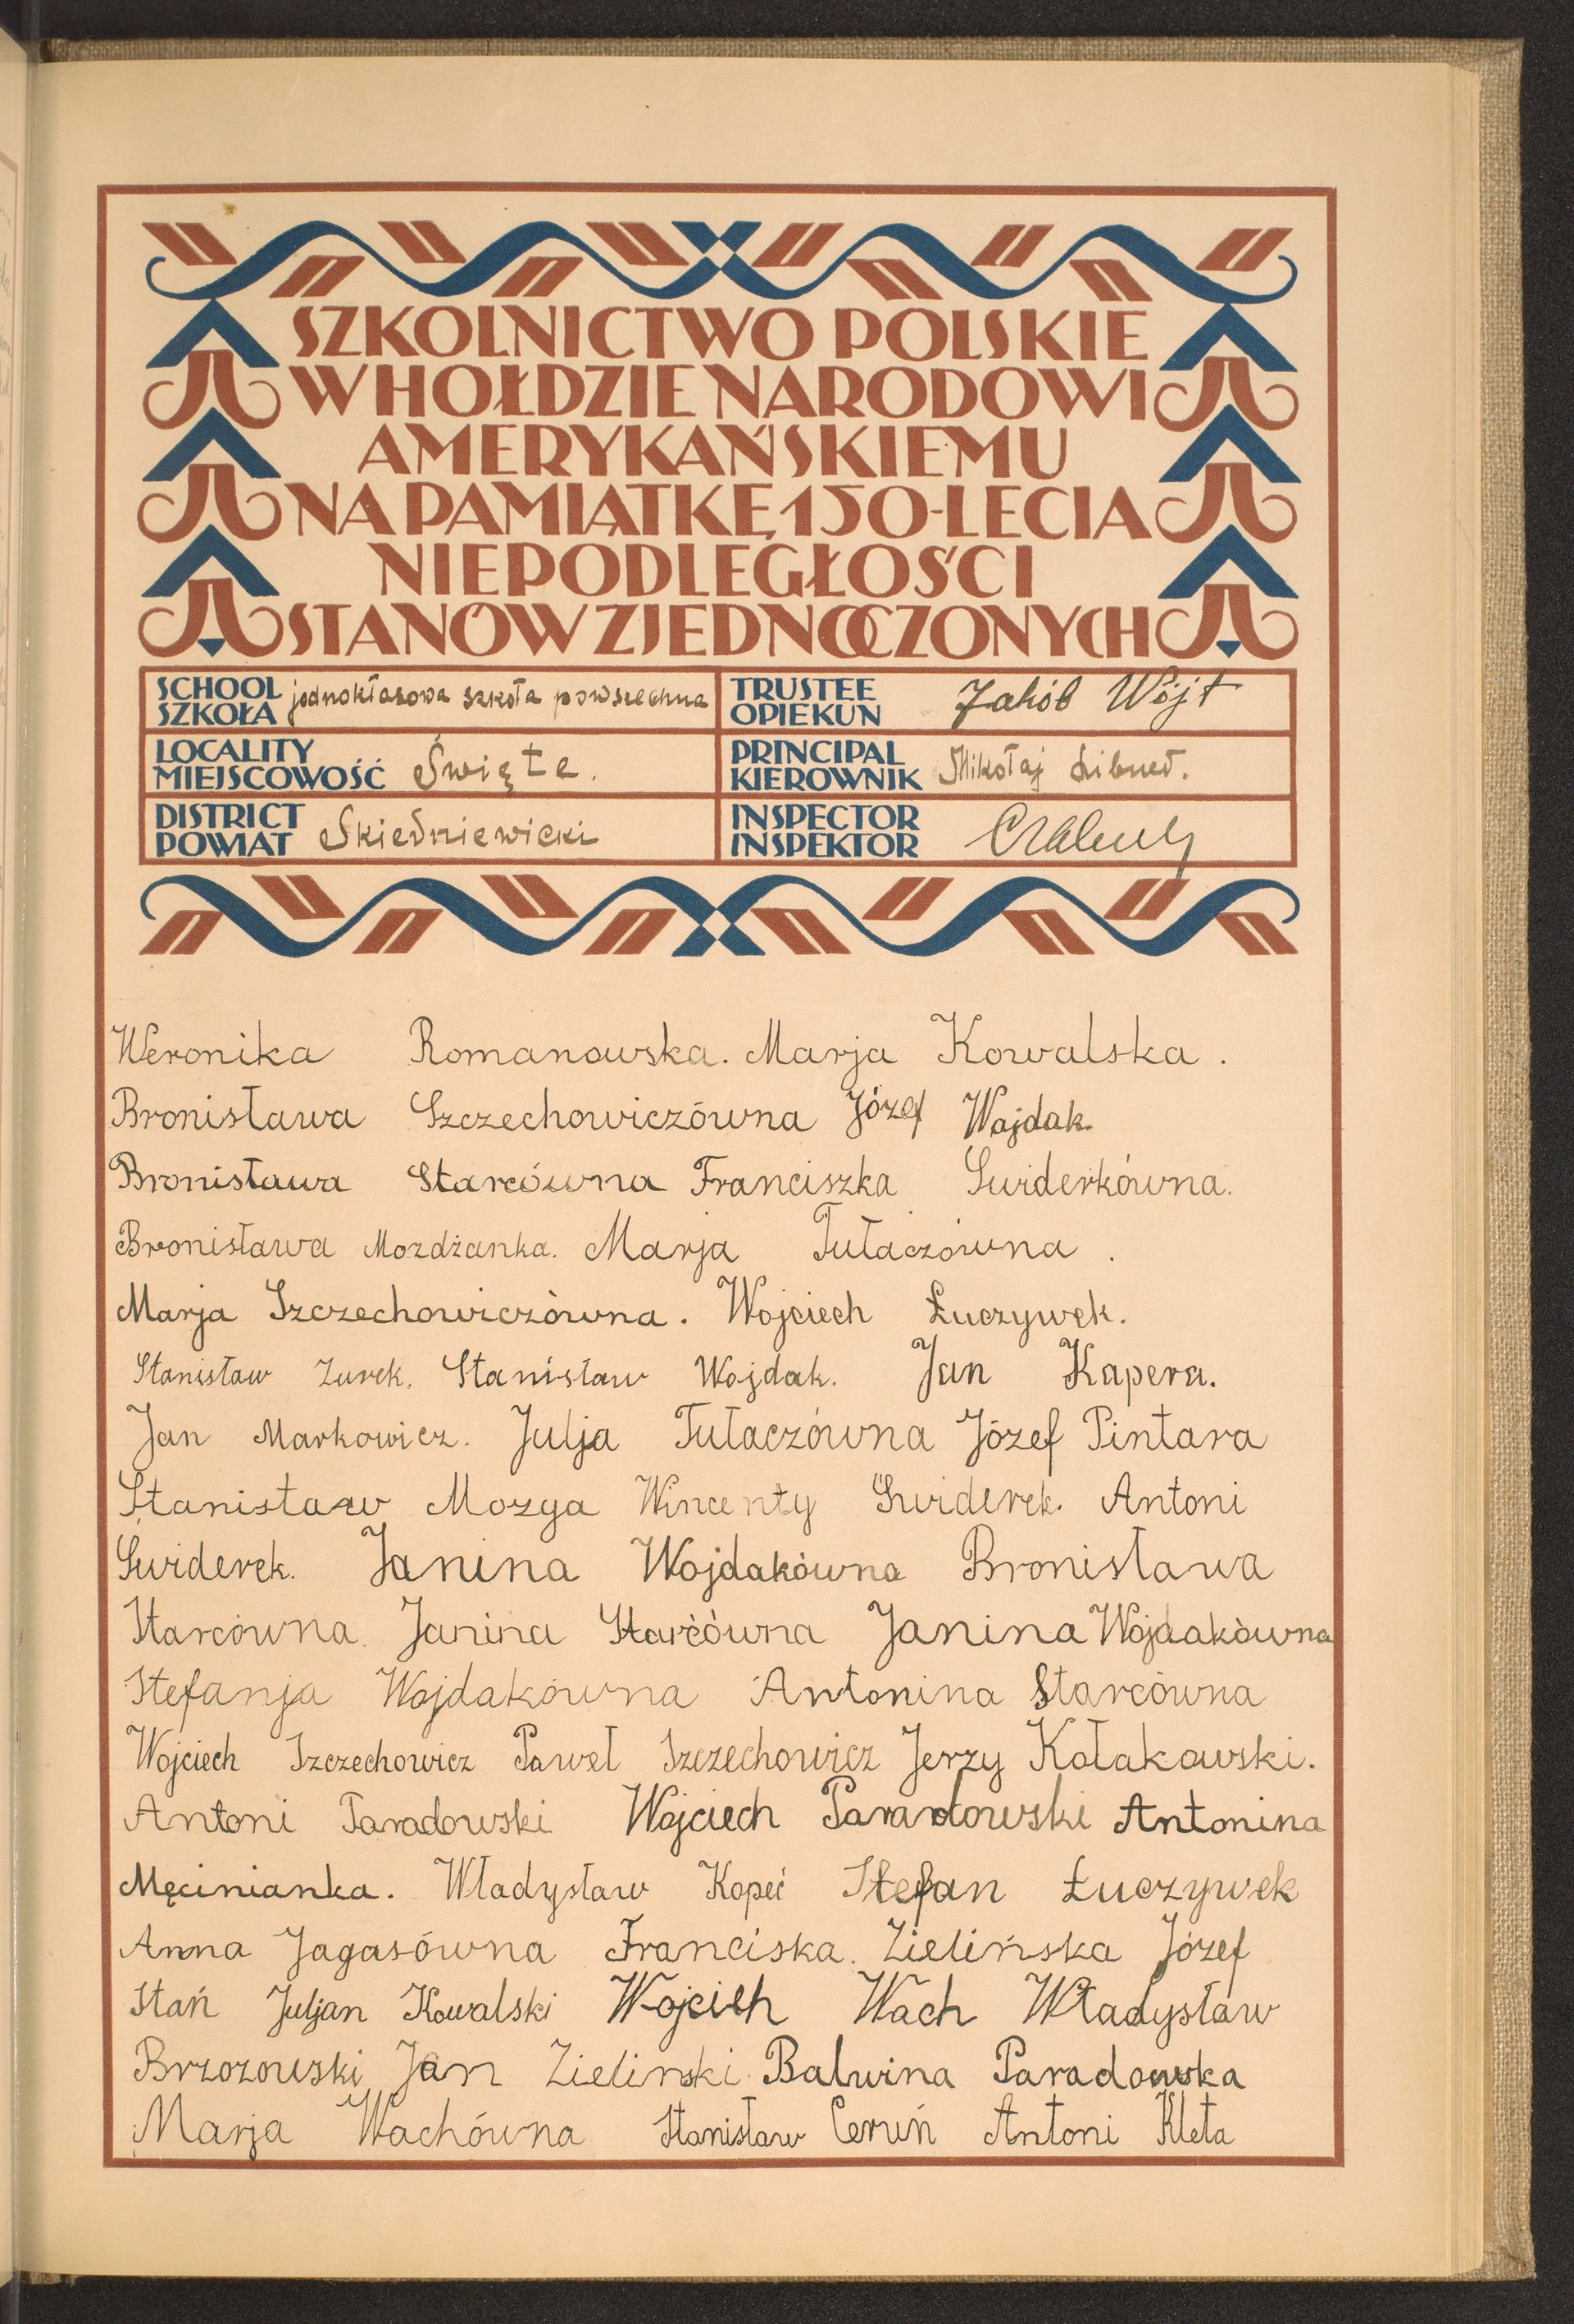 SZKOLNICTWO POLSKIE
W HOŁDZIE NARODOWI
AMERYKAŃSKIEMU
NA PAMIĄTKĘ 150-LECIA
NIEPODLEGŁOŚCI
STANÓW ZJEDNOCZONYCH
SCHOOL
SZKOŁA jednoklasowa szkoła powszechna
TRUSTEE
OPIEKUN Jakób Wójt
LOCALITY
MIEJSCOWOŚĆ Święte.
PRINCIPAL
KIEROWNIK Mikołaj
DISTRICT
POWIAT Skierniewicki
INSPECTOR
INSPEKTOR
Weronika Romanowska. Marja Kowalska.
Bronisława Szczechowiczówna Józef Wojdak.
Bronisława Starcówna Franciszka Świderkówna.
Bronisława Mozdżanka. Marja Tułaczówna.
Marja Szczechowiczówna. Wojciech Łuczywek.
Stanisław Żurek. Stanisław Wojdak. Jan Kapera.
Jan Markowicz. Julja Tułaczówna Józef Pintara
Stanisław Mozga Wincenty Świderek. Antoni
Świderek. Janina Wojdakówna Bronisława
Starcówna. Janina Starcówna Janina Wojdakówna
Stefanja Wojdakówna Antonina Starcówna
Wojciech Szczechowicz Paweł Szczechowicz Jerzy Kołakowski.
Antoni Paradowski Wojciech Paradowski Antonina
Męcinianka. Władysław Kopeć Stefan Łuczywek
Anna Jagasówna Franciska Zielińska Józef
Stań Juljan Kowalski Wojcieh Wach Władysław
Brzozowski Jan Zieliński Balwina Paradowska
Marja Wachówna Stanisław Ceruń Antoni Kleta